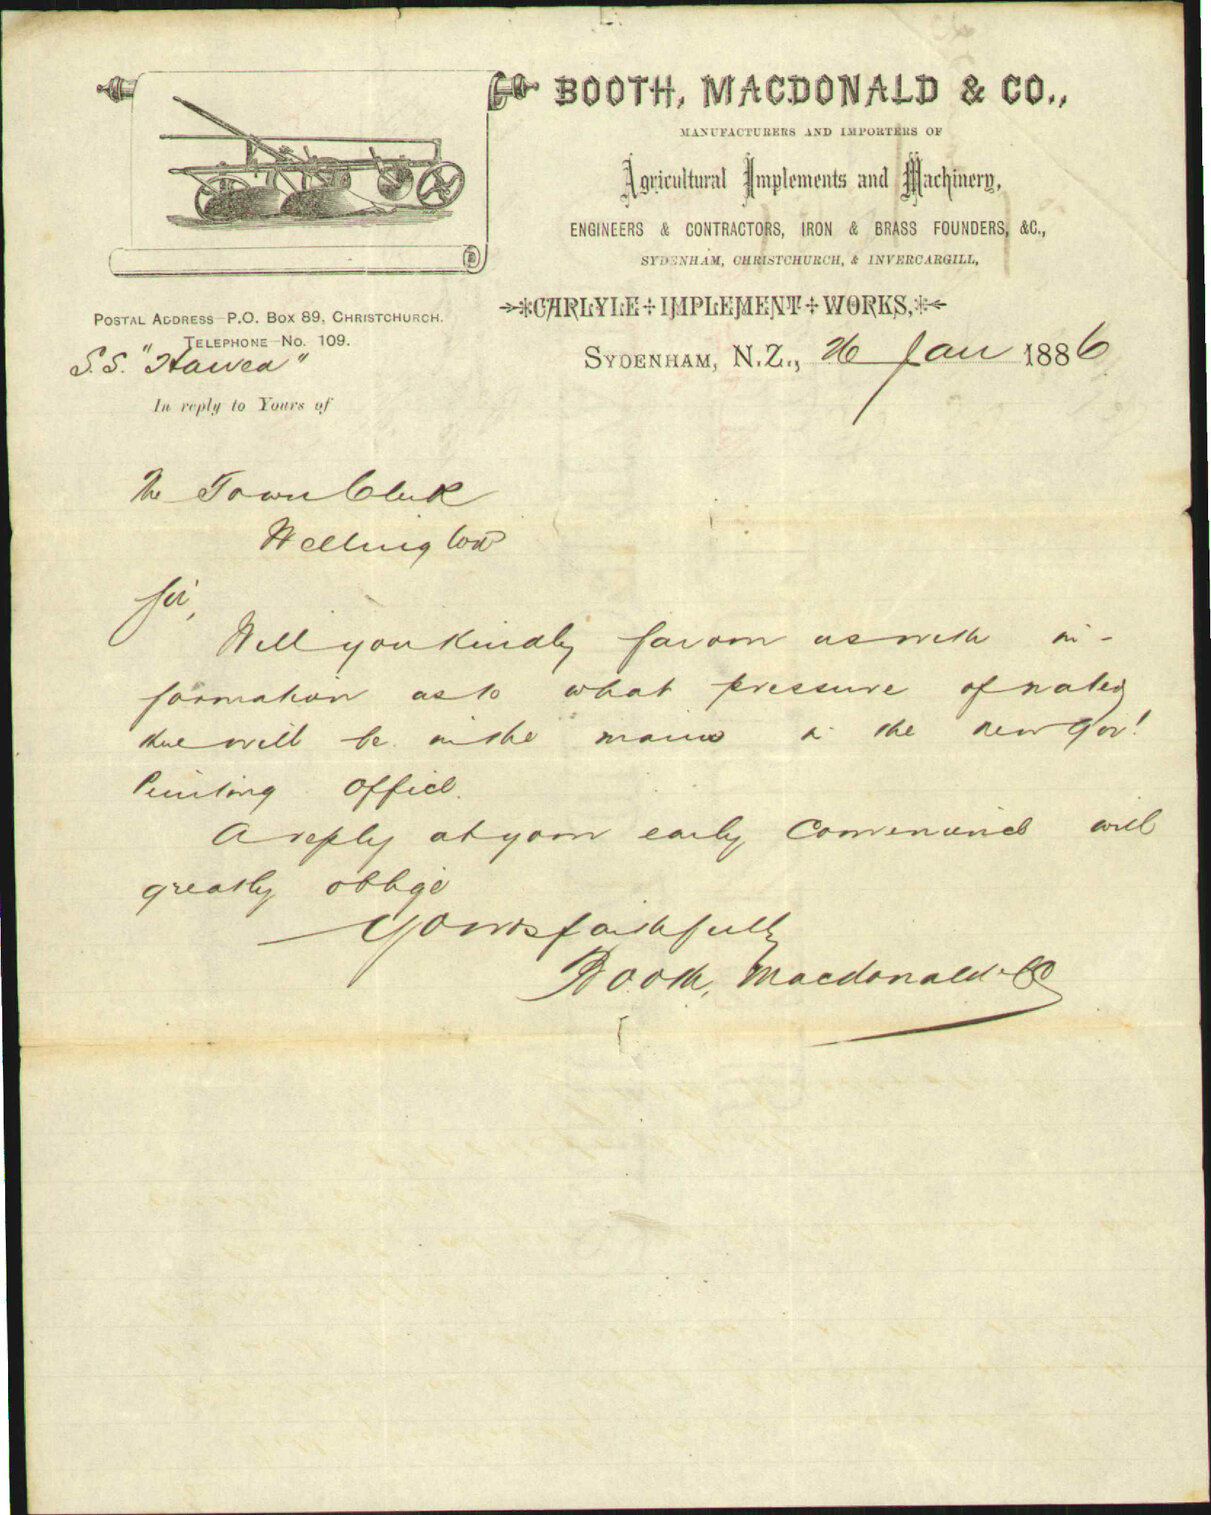 BOOTH, MACDONALD & CO.,
MANUFACTURERS AND IMPORTERS OF
Agricultural Implements and Machinery,
ENGINEERS & CONTRACTORS, IRON & BRASS FOUNDERS, &C.,
SYDENHAM, CHRISTCHURCH, & INVERCARGILL,
CARLYLE IMPLEMENT WORKS,
POSTAL ADDRESS P.O. BOX 89, CHRISTCHURCH.
TELEPHONE No. 109.
S.S. "Hawea"
SYDENHAM, N.Z., 26 Jan 1886
In reply to Yours of
The Town Clerk
Wellington
Sir,
Will you kindly favour us with in-
formation as to what pressure of water
there will be in the mains in the new Gov!
Printing Office.
A reply at your early convenience will
greatly oblige
Yours faithfully
Booth, Macdonald & Co